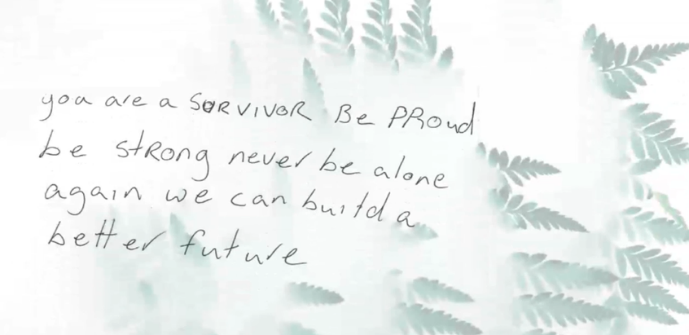 you are a SURVIVOR Be PRoud
be stRong never be alone
again we can build a
better future